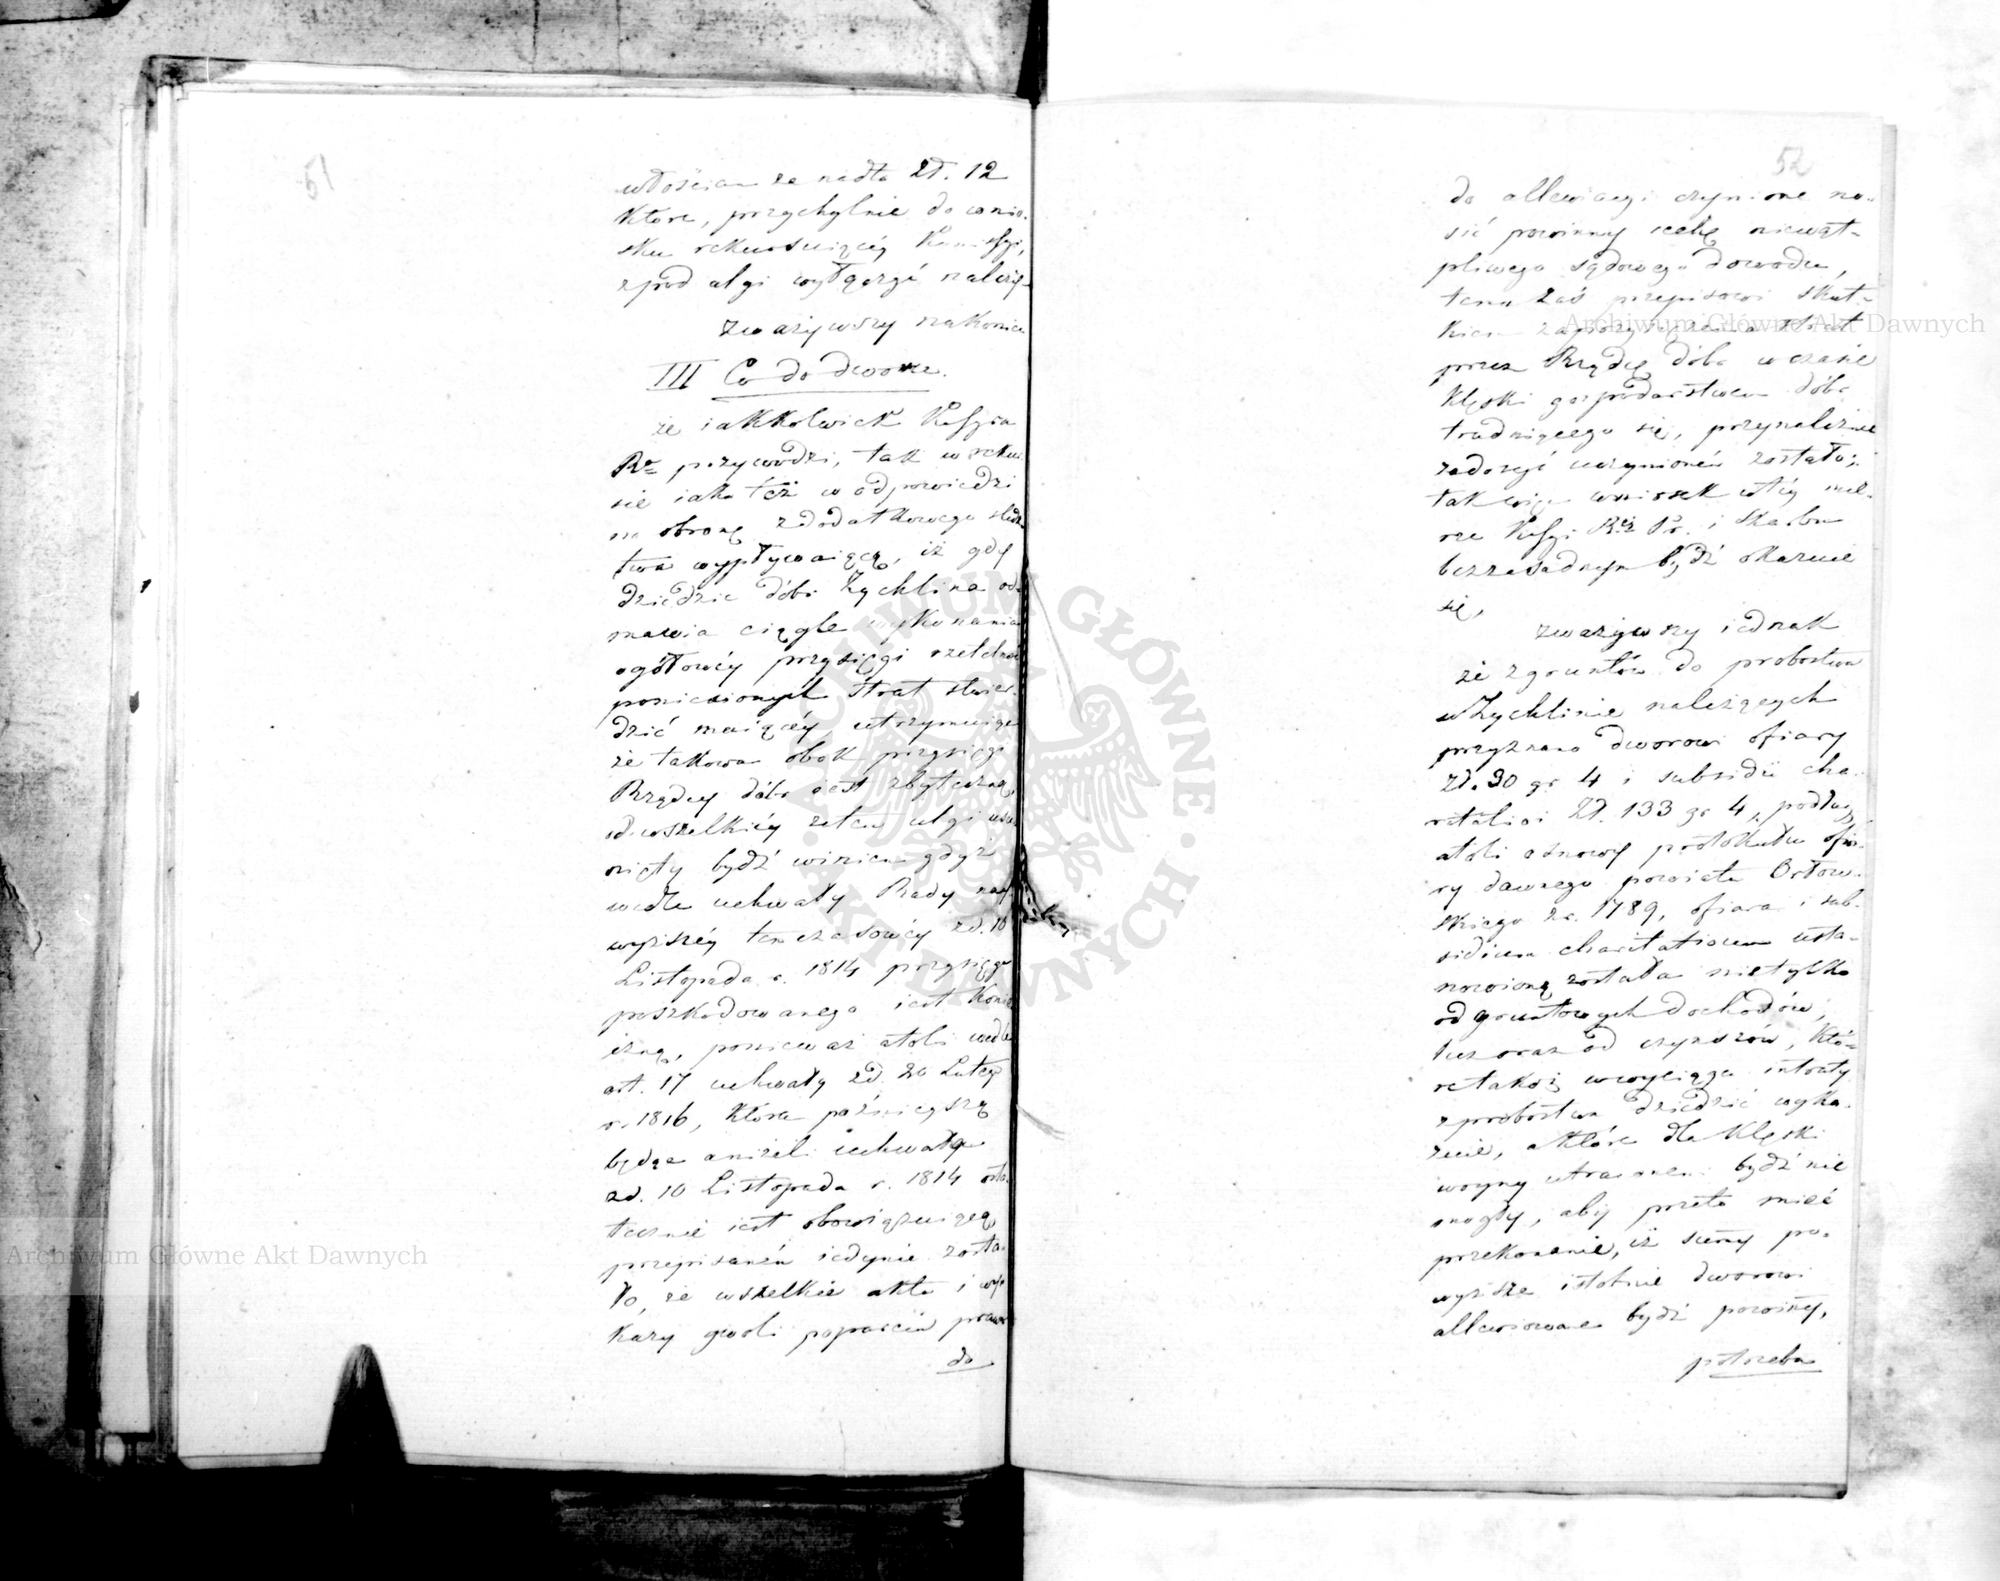 51
włościan za nadto Zł. 12
które, przychylnie do wnio-
sku rekursuiącéy Kommissyi,
z pod ulgi wyłączyć należy
zważywszy nakoniec
III Co do dworu.
że iakkolwiek Kassyia
Rz. przywodzi, tak w rekur
sie iako też w odpowiedzi
na obronę z dodatkowego śledz
twa wypływaiącą, iż gdy
dziedzic dóbr Zychlina od-
mawia ciągle wykonania
ogółowéy przysięgi rzetelność
poniesionych strat stwier-
dzić maiącéy, utrzymuiąc
że takowa obok przysięgi
Rządcy dóbr iest zbyteczną,
od wszelkiéy zatem ulgi usu-
nięty bydź winien gdyż
wedle uchwały Rady nay
wyższéy tymczasowéy z d. 10
Listopada r. 1814 przysięga
poszkodowanego iest koniecz
czną, ponieważ atoli wedle
art. 17 uchwały z d. 20 Lutego
r. 1816, która późnieyszą
będąc aniżeli uchwała
z d. 10 Listopada r. 1814 osta-
tecznie iest obowiązuiącą,
przepisaném iedynie zosta-
ło, że wszelkie akta i wy-
kazy gwoli poparcia prawa
do
52
do allewiacyi czynione no-
sić powinny cechę niewąt-
pliwego sądowego dowodu,
temu zaś przepisowi skut-
kiem zaprzysiężenia strat
przez Rządcę dóbr w czasie
klęski gospodarstwem dóbr
trudniącego się, przynależnie
zadosyć uczynioném zostało;
tak więc wniosek w téy mie-
rze Kssyi Rz. Pr. i Skarbu
bezzasadnym bydź okazuie
się,
zważywszy iednak
że z gruntów do probostwa
w Zychlinie należących
przyznano dworowi ofiary
Zł. 30 gr 4 i subsidii cha-
ritativi Zł. 133 gr 4, podług
atoli osnowy protokułu ofia-
ry dawnego powiatu Orłow-
skiego z r. 1789, ofiara i sub-
sidium charitativum usta-
nowioną została nietylko
od gruntowych dochodów,
lecz oraz od czynszów, któ-
re takoż w wyciągu intraty
z probostwa dziedzic wyka-
zuie, a które dla klęski
woyny utracone bydź nie
mogły, aby przeto mieć
przekonanie, iż sumy po-
wyższe istotnie dworowi
allewiowane bydź powinny,
potrzeba
Archiwum Główne Akt Dawnych
Archiwum Główne Akt Dawnych
ARCHIWUM GŁÓWNE · AKT DAWNYCH ·